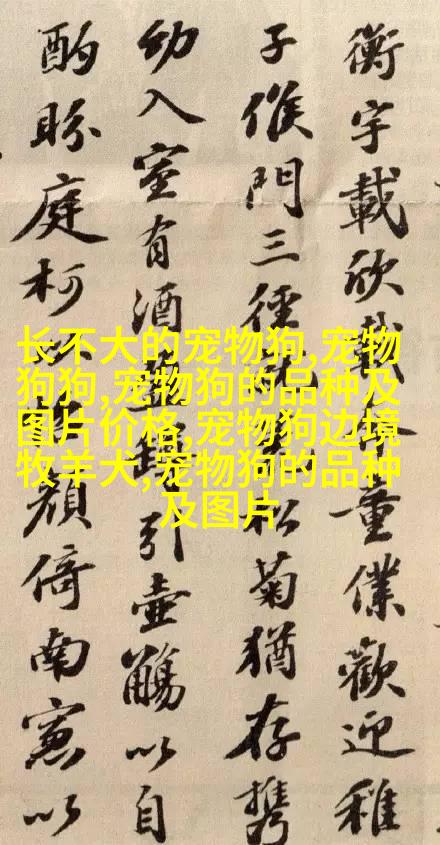 衡宇載欣載童僕歡迎稚
子候門三徑松菊猶存携
幼入室有酒盈樽引壺觴以自
酌眄庭柯以顏倚南窓以
长不大的宠物狗,宠物
狗狗,宠物狗的品种及
图片价格,宠物狗边境
牧羊犬,宠物狗的品种
及图片